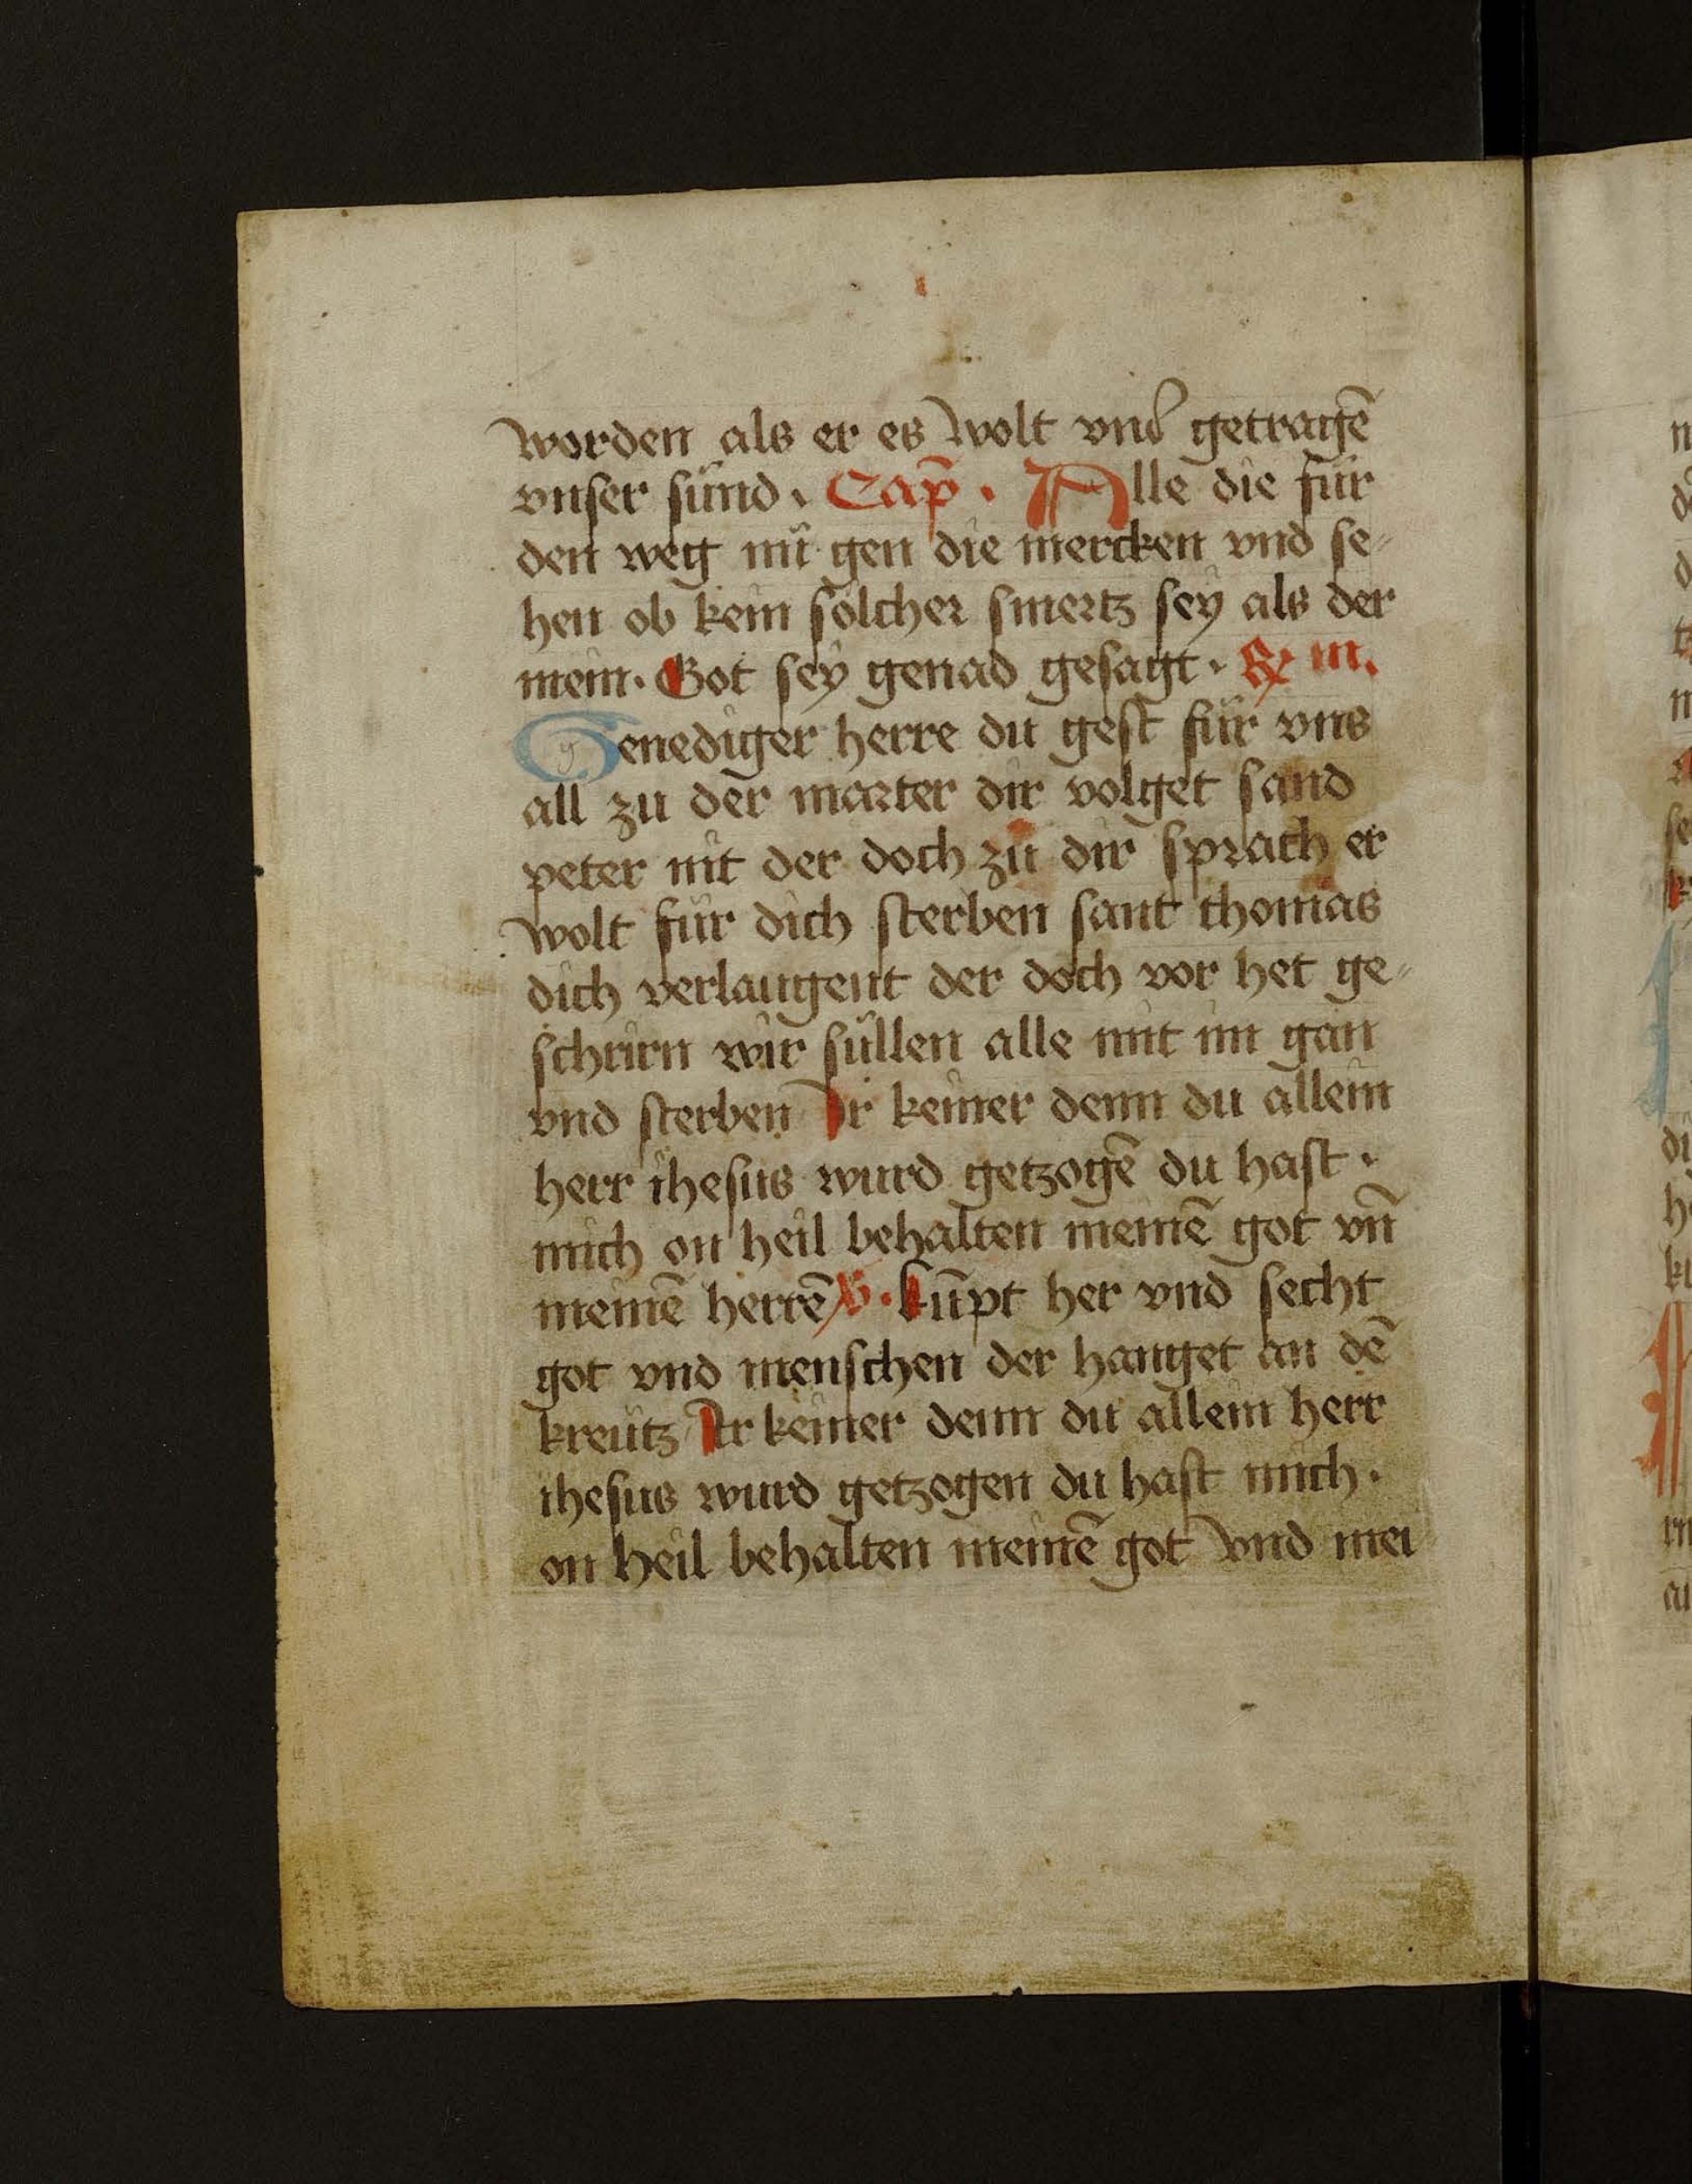 worden als er es wolt vnd getragē
vnser sünd. Cap̄. Alle die für
den weg nü gen die mercken vnd se⸗
hen ob kein sölcher smertz sey als der
mein. Got sey genad gesagt. ℞ m.
Genediger herre du gest für vns
all zu der marter dir volget sand
peter nit der doch zu dir sprach er
wolt für dich sterben sant thomas
dich verlaugent der doch vor het ge⸗
schrirn wir süllen alle mit im gan
vnd sterben Ir keiner denn du allein
herr ihesus wurd getzogē du hast.
mich on heil behalten meinē got vn̄
meinē herrē ℣. kūpt her vnd secht
got vnd menschen der hanget an dē
kreutz Ir keiner denn du allein herr
ihesus wurd getzogen du hast mich.
on heil behalten meinē got vnd mei